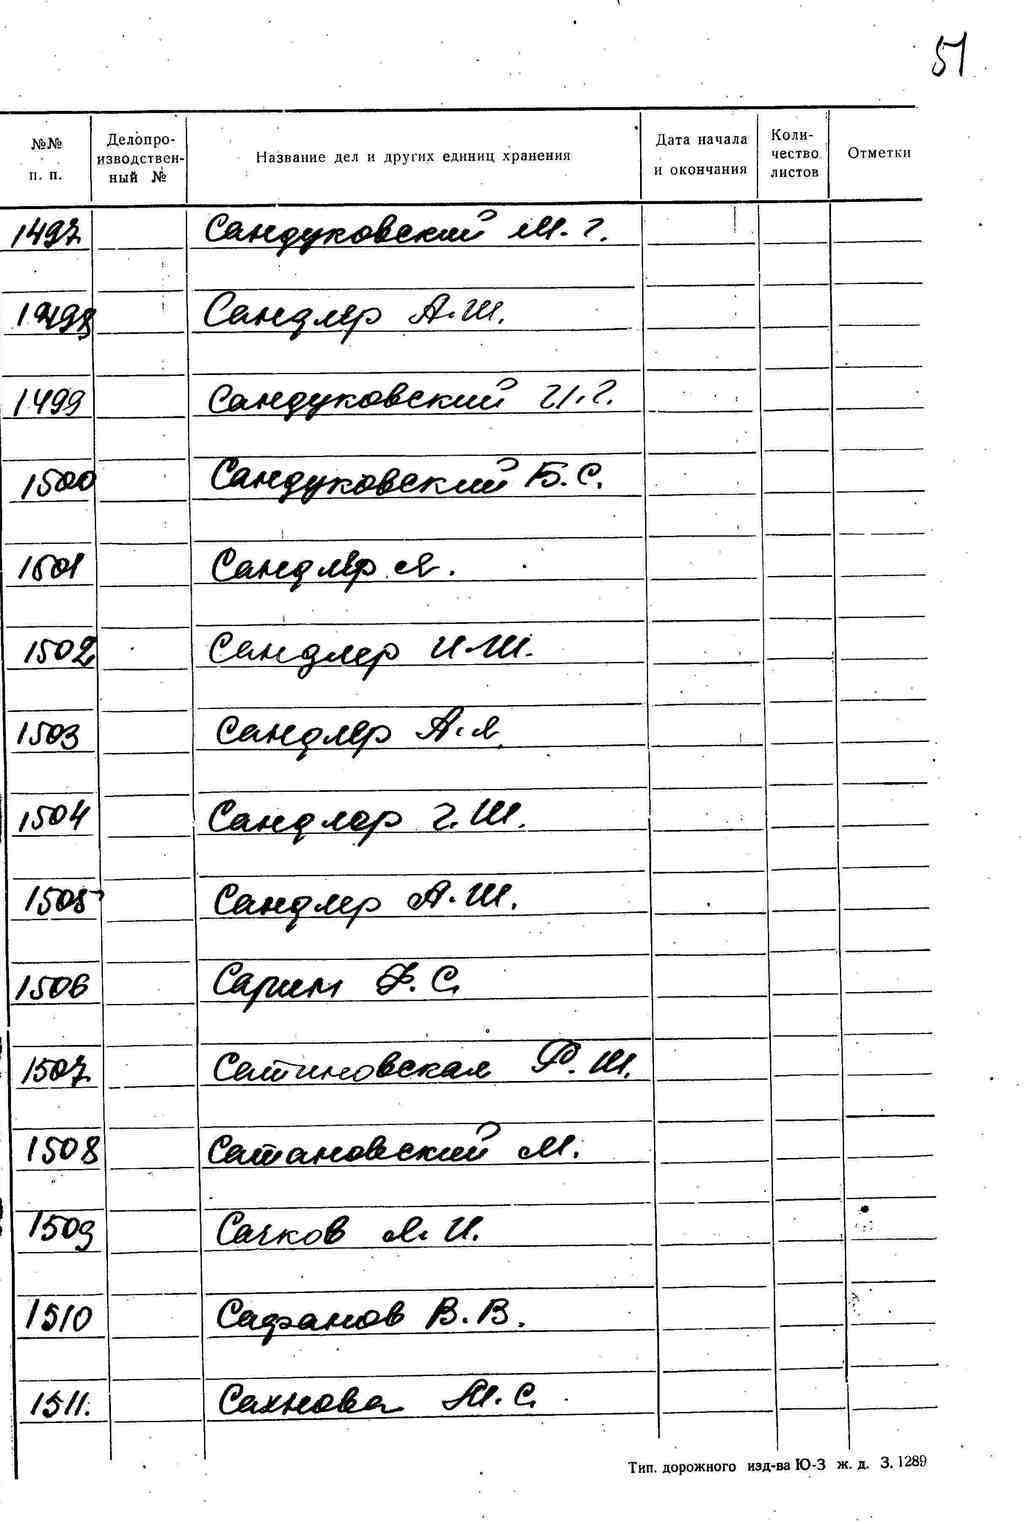 51
№№ п. п. Делопро-изводствен-ный № Название дел и других единиц хранения Дата начала и окончания Коли-чество листов Отметки
1497 Сандуковский М. Г.
1498 Сандлер А. Ш.
1499 Сандуковский И. Г.
1500 Сандуковский Б. С.
1501 Сандлер Я.
1502 Сандлер И. Ш.
1503 Сандлер А. Я.
1504 Сандлер Г. Ш.
1505 Сандлер А. Ш.
1506 Сарим Ф. С.
1507 Сатиновская Ф. Ш.
1508 Сатановский М.
1509 Сачков Я. И.
1510 Сафанов В. В.
1511. Сахнова М. С.
Тип. дорожного изд-ва Ю-З ж. д. З. 1289